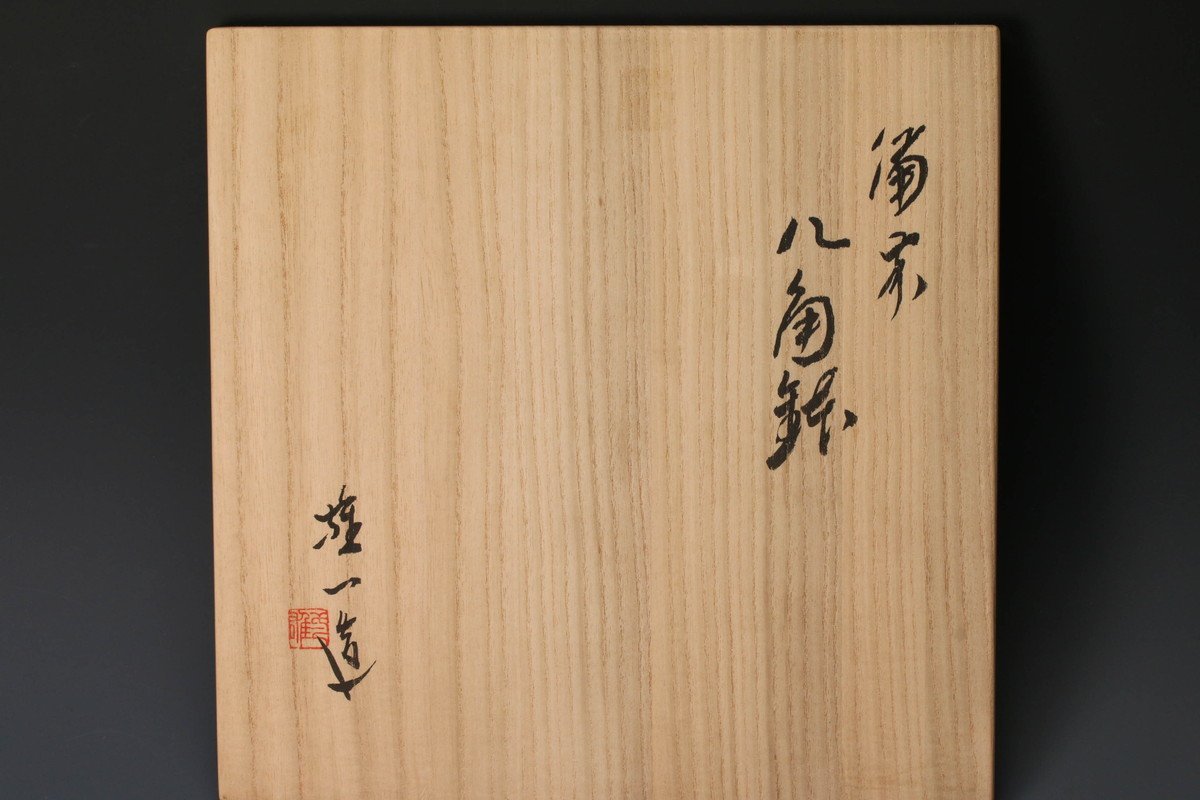 備前
八角鉢
雄一造